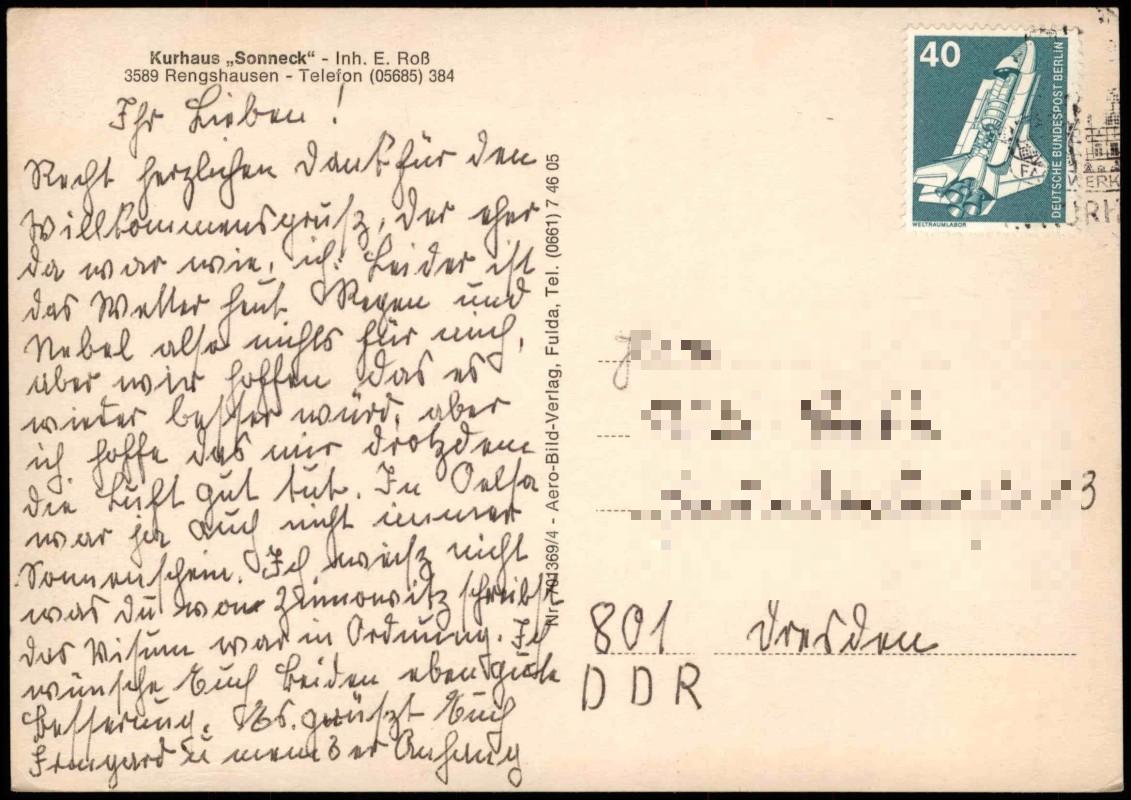 Kurhaus „Sonneck“ - Inh. E. Roß
3589 Rengshausen - Telefon (05685) 384
Ihr Lieben!
Recht herzlichen Dank für den
Willkommensgrusz, der eher
da war wie, ich. Leider ist
das Wetter heut Regen und
Nebel also nichts für mich,
aber wir hoffen das es
wieder besser würd, aber
ich hoffe das mir drotzdem
die Luft gut tut. In Oelsa
war ja auch nicht immer
Sonnenschein. Ich weisz nicht
was du von Zinnowitz schreibst
das Visum war in Ordnung. Ich
wünsche Euch beiden eben gute
Besserung. Es grüszt Euch
Irmgard u
Anhang
Nr. 701369/4 - Aero-Bild-Verlag, Fulda, Tel. (0661) 7 46 05
40
DEUTSCHE BUNDESPOST BERLIN
WELTRAUMLABOR
3
801 Dresden
DDR